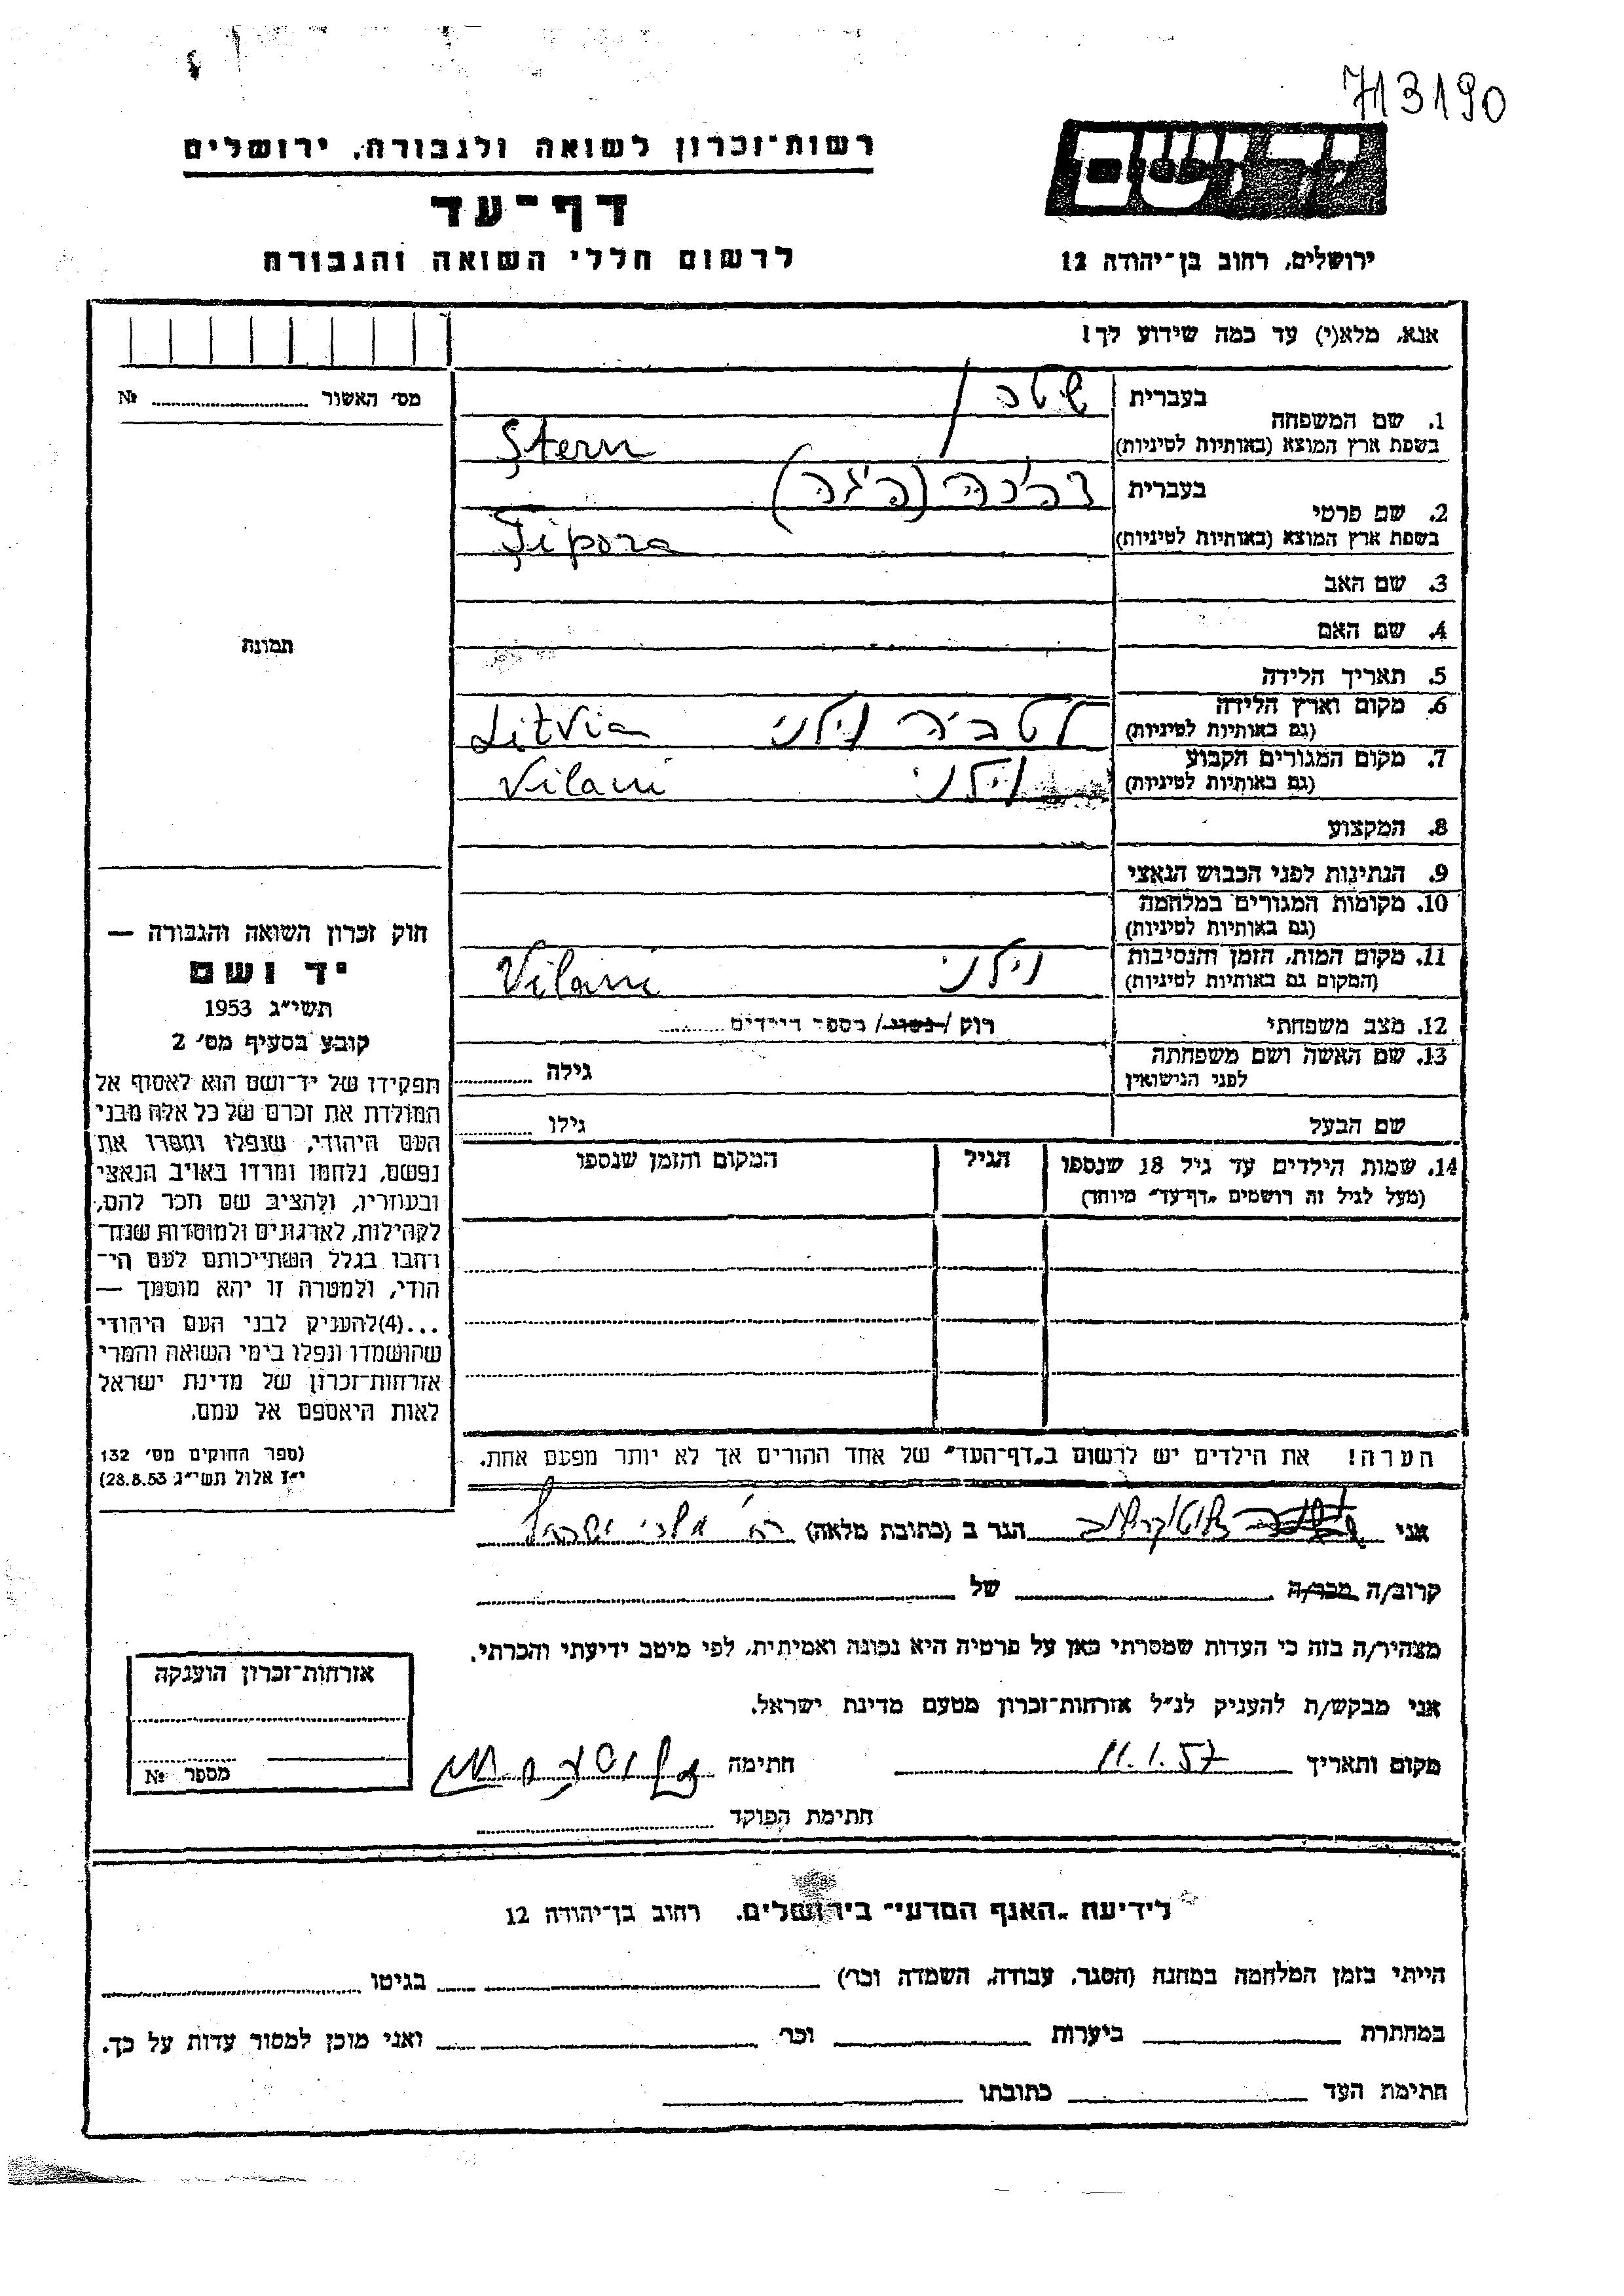 713190
יד ושם
רשות־זכרון לשואה ולגבורה, ירושלים
דף־עד
לרשום חללי השואה והגבורה
ירושלים, רחוב בן־יהודה 12
אנא, מלא(י) עד כמה שידוע לך!
מס׳ האשור № ........
1. שם המשפחה
בעברית
בשפת ארץ המוצא (באותיות לטיניות) Ştern
2. שם פרטי
בעברית
בשפת ארץ המוצא (באותיות לטיניות) Ţipora
3. שם האב
4. שם האם
5. תאריך הלידה
6. מקום וארץ הלידה
(גם באותיות לטיניות) לטביה וילני Litvia
7. מקום המגורים הקבוע
(גם באותיות לטיניות) וילני Vilani
8. המקצוע
9. הנתינות לפני הכבוש הנאצי
10. מקומות המגורים במלחמה
(גם באותיות לטיניות)
11. מקום המות, הזמן והנסיבות
(המקום גם באותיות לטיניות) וילני Vilani
12. מצב משפחתי רווק / נשוי / מספר הילדים ........
13. שם האשה ושם משפחתה
לפני הנישואין גילה ........
שם הבעל גילו ........
14. שמות הילדים עד גיל 18 שנספו
(מעל לגיל זה רושמים „דף־עד" מיוחד)
הגיל
המקום והזמן שנספו
הערה! את הילדים יש לרשום ב„דף־העד" של אחד ההורים אך לא יותר מפעם אחת.
תמונה
חוק זכרון השואה והגבורה —
יד ושם
תשי״ג 1953
קובע בסעיף מס׳ 2
תפקידו של יד־ושם הוא לאסוף אל
המולדת את זכרם של כל אלה מבני
העם היהודי, שנפלו ומסרו את
נפשם, נלחמו ומרדו באויב הנאצי
ובעוזריו, ולהציב שם וזכר להם,
לקהילות, לארגונים ולמוסדות שנח־
רבו בגלל השתייכותם לעם הי־
הודי, ולמטרה זו יהא מוסמך —
...(4)להעניק לבני העם היהודי
שהושמדו ונפלו בימי השואה והמרי
אזרחות־זכרון של מדינת ישראל
לאות היאספם אל עמם.
(ספר החוקים מס׳ 132
י״ז אלול תשי״ג 28.8.53)
אני ........ הגר ב (כתובת מלאה) ........
קרוב/ה מכר/ה ........ של ........
מצהיר/ה בזה כי העדות שמסרתי כאן על פרטיה היא נכונה ואמיתית, לפי מיטב ידיעתי והכרתי.
אני מבקש/ת להעניק לנ״ל אזרחות־זכרון מטעם מדינת ישראל.
מקום ותאריך 11.1.57 חתימה
חתימת הפוקד ........
אזרחות־זכרון הוענקה
מספר №
לידיעת „האגף המדעי" בירושלים, רחוב בן־יהודה 12
הייתי בזמן המלחמה במחנה (הסגר, עבודה, השמדה וכו׳) ........ בגיטו ........
במחתרת ........ ביערות ........ וכו׳ ........ ואני מוכן למסור עדות על כך.
חתימת העד ........ כתובתו ........